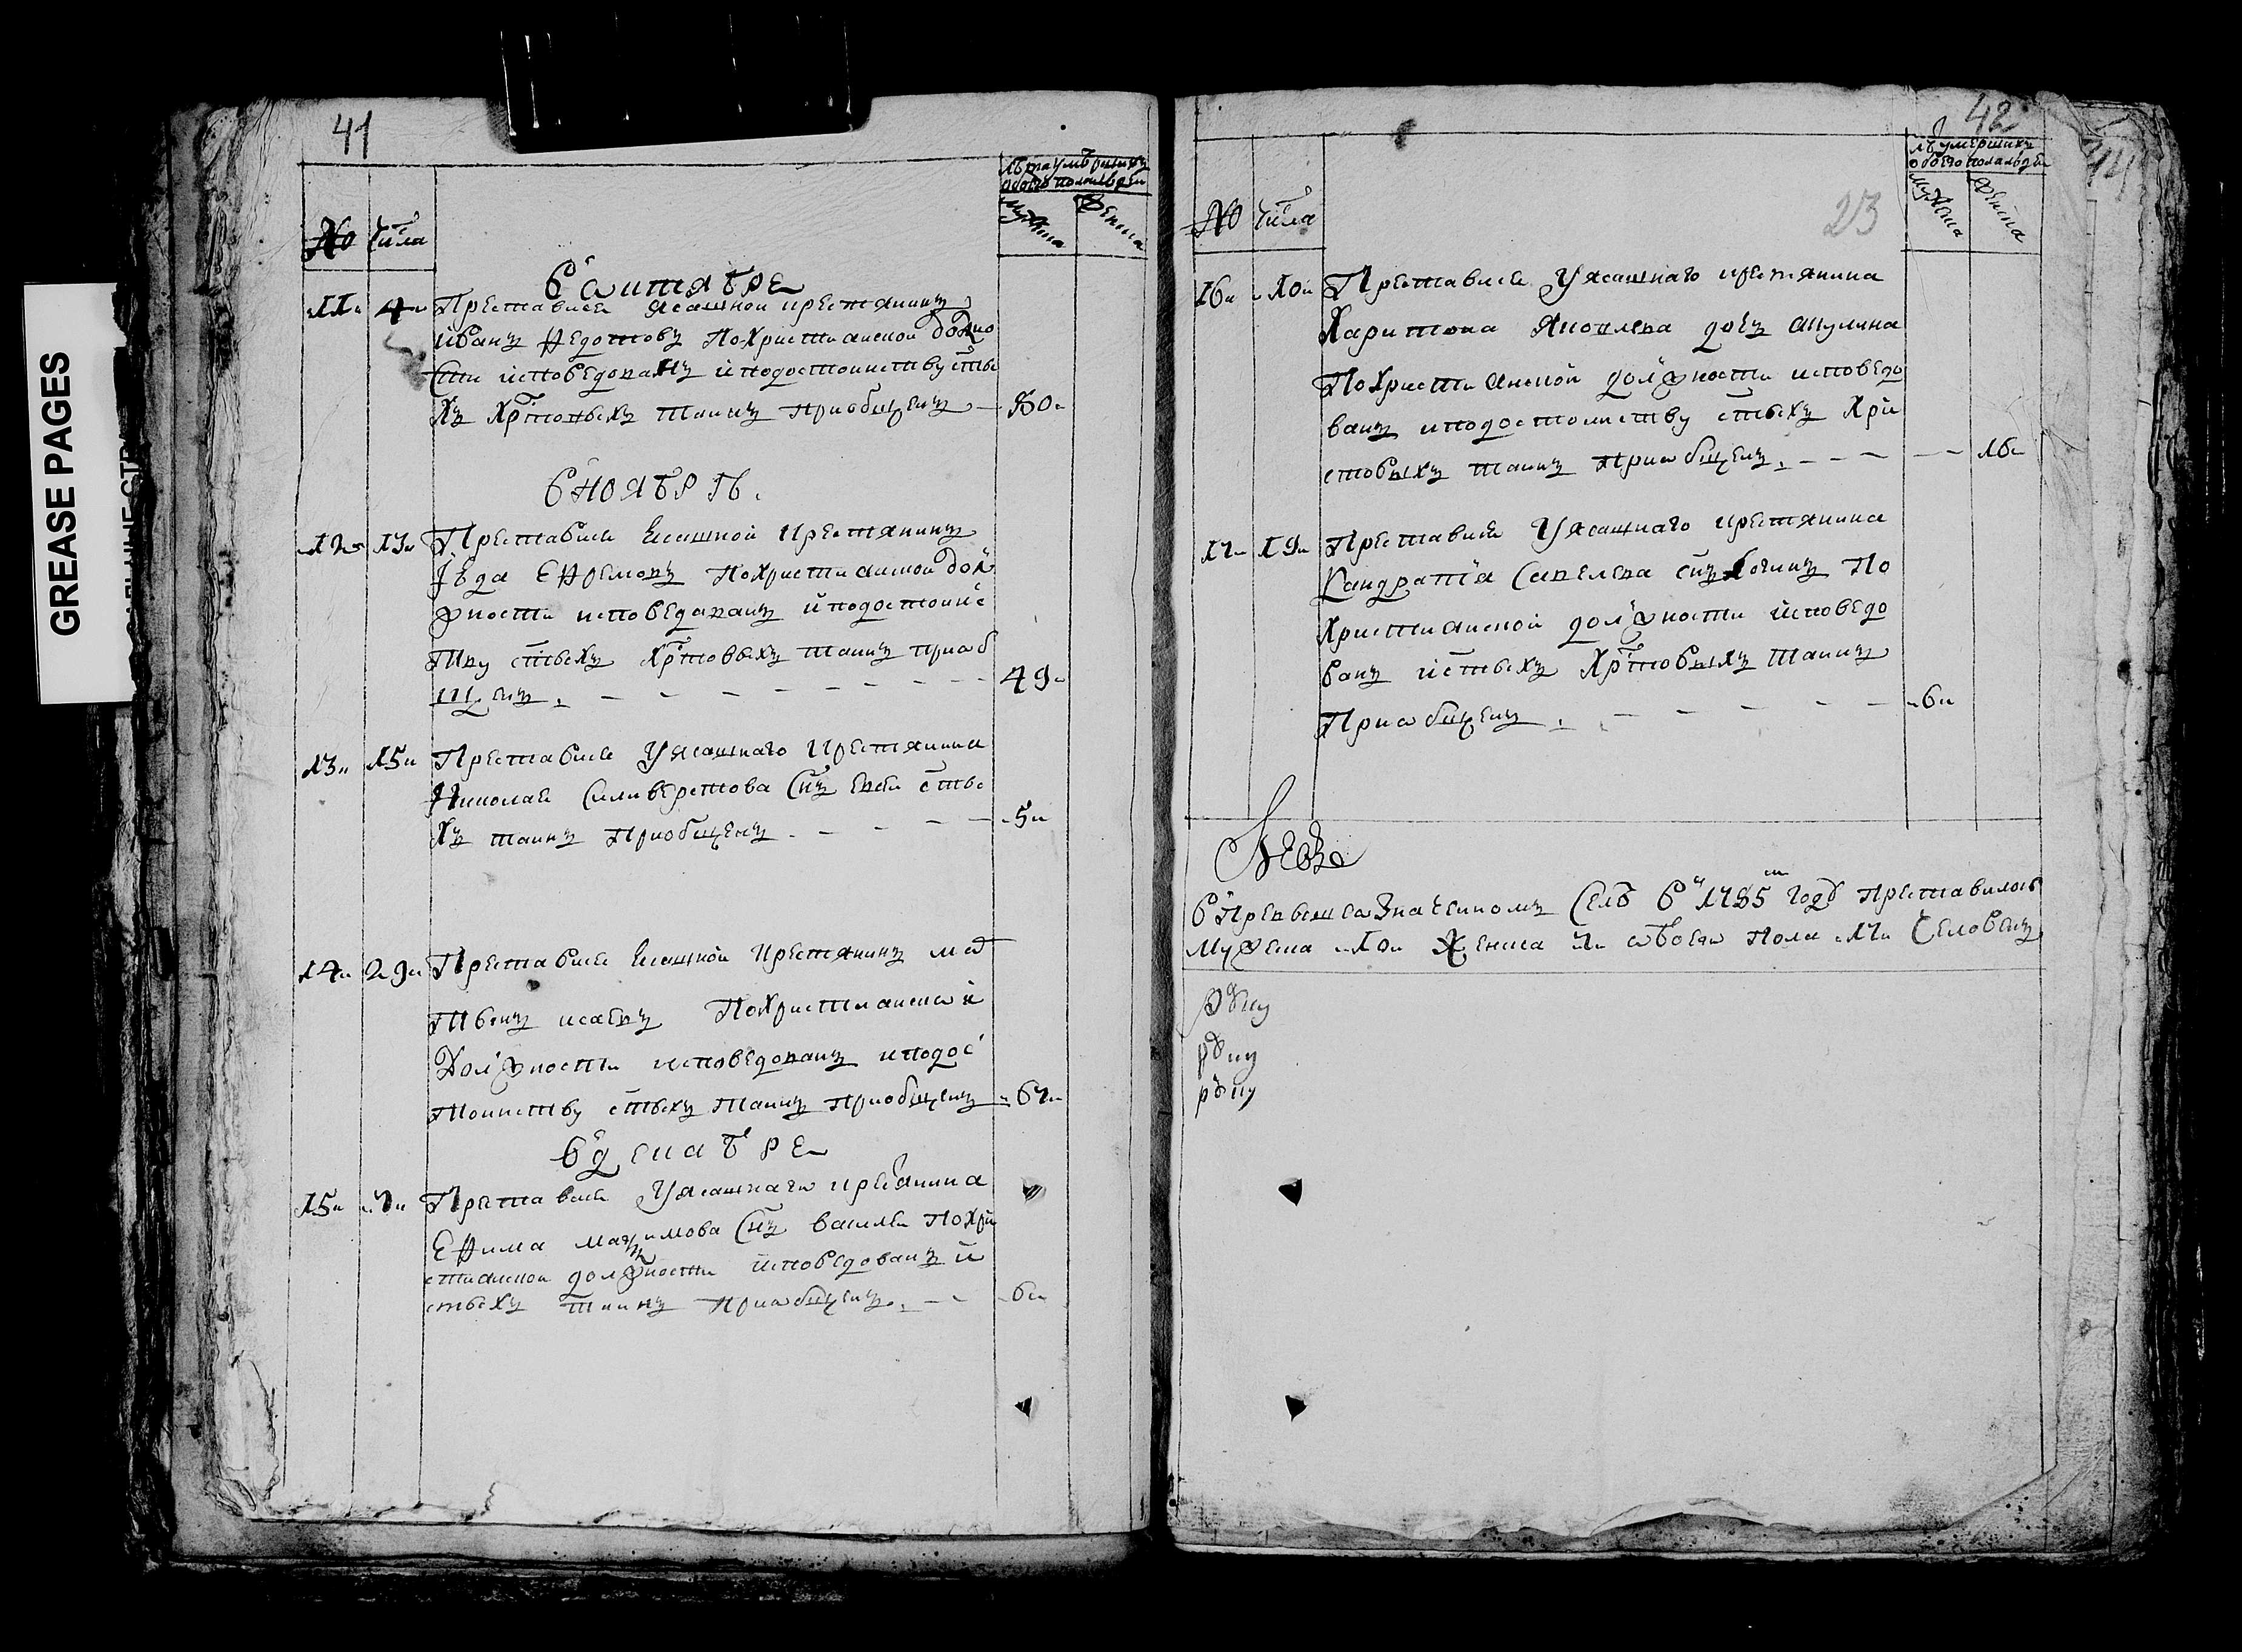 GREASE PAGES
41
лѣта умѣршихъ
обоего пола людеи
№ числа мужеска женска
Въ октябрѣ
11 4 Преставися ясашной крестянинъ
иванъ федотовъ По христианской должно
сти исповедованъ и по достоинству сты
хъ хрто́выхъ таинъ приобщенъ — 80
В ноябрѣ.
12 13 Преставися ясашной крестянинъ
ефремовъ По христианской дол
жности исповедованъ и по достоинс
тву стыхъ хртовыхъ таинъ приоб
щенъ. 49
13 15 Преставися У ясашнаго крестянина
Николая Силиверстова снъ сты
хъ таинъ приобщенъ 5
14 29 Преставися ясашной крестянинъ мат
твеи исаевъ По христианской
должности исповедованъ и по дос
тоинству стыхъ таинъ приобщенъ 67
В декабрѣ
15 7 Преставися У ясашнаго кресянина
Ефима Маѯимова снъ василеи По хри
стианской должности исповедованъ и
стыхъ таинъ приобщенъ. 6
42
лѣ умершихъ
обоего пола людеи
23
№ числа мужеска женска
16 10 Преставися У ясашнаго крестянина
Харитона Яковлева дочь акулина
По христианской должности исповедо
ванъ и по достоинству стыхъ Хри
стовыхъ таинъ приобщенъ. 16
17 19 Преставися У ясашнаго крестянина
Кандратія Савелева снъ логинъ По
христианской должности исповедо
ванъ и стыхъ Хртовыхъ таинъ
Приобщенъ. 6
Всево
В превышеозначенномъ Селѣ В 1785 м годѣ Преставилось
Мужеска 10 Женска 7 обоего пола 17 Человекъ